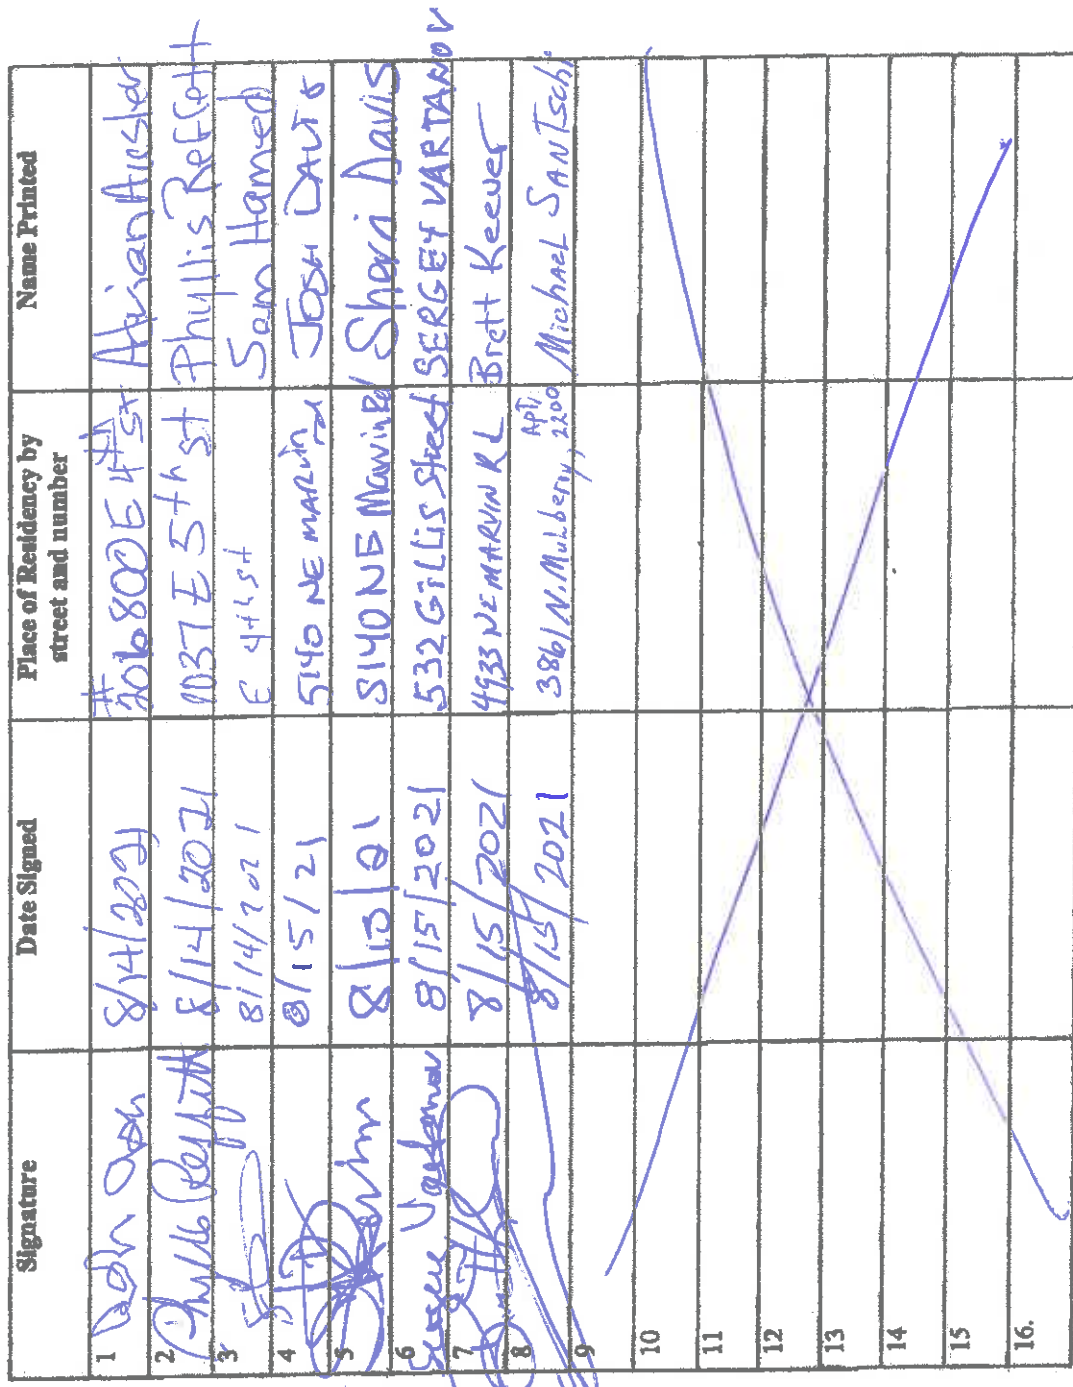 Signature Date Signed Place of Residency by street and number Name Printed
1 8/14/2021 #206 800 E 4th St
2 Phyllis Reffitt 8/14/2021 1037 E 5th St Phyllis Reffitt
3 8/14/2021 E 4th st Sam Hamed
4 8/15/21 5140 NE MARVIN Rd JOSH DAVIS
5 5140 NE Marvin Rd Sherri Davis
6 Sergey Vartanov 8/15/2021 532 GiLLis Street SERGEY VARTANOV
7 8/15/2021 4933 NE MARVIN Brett Keever
8 8/15/2021 3861 N. Mulberry, Apt. 2200 Michael SANTschi
9
10
11
12
13
14
15
16.